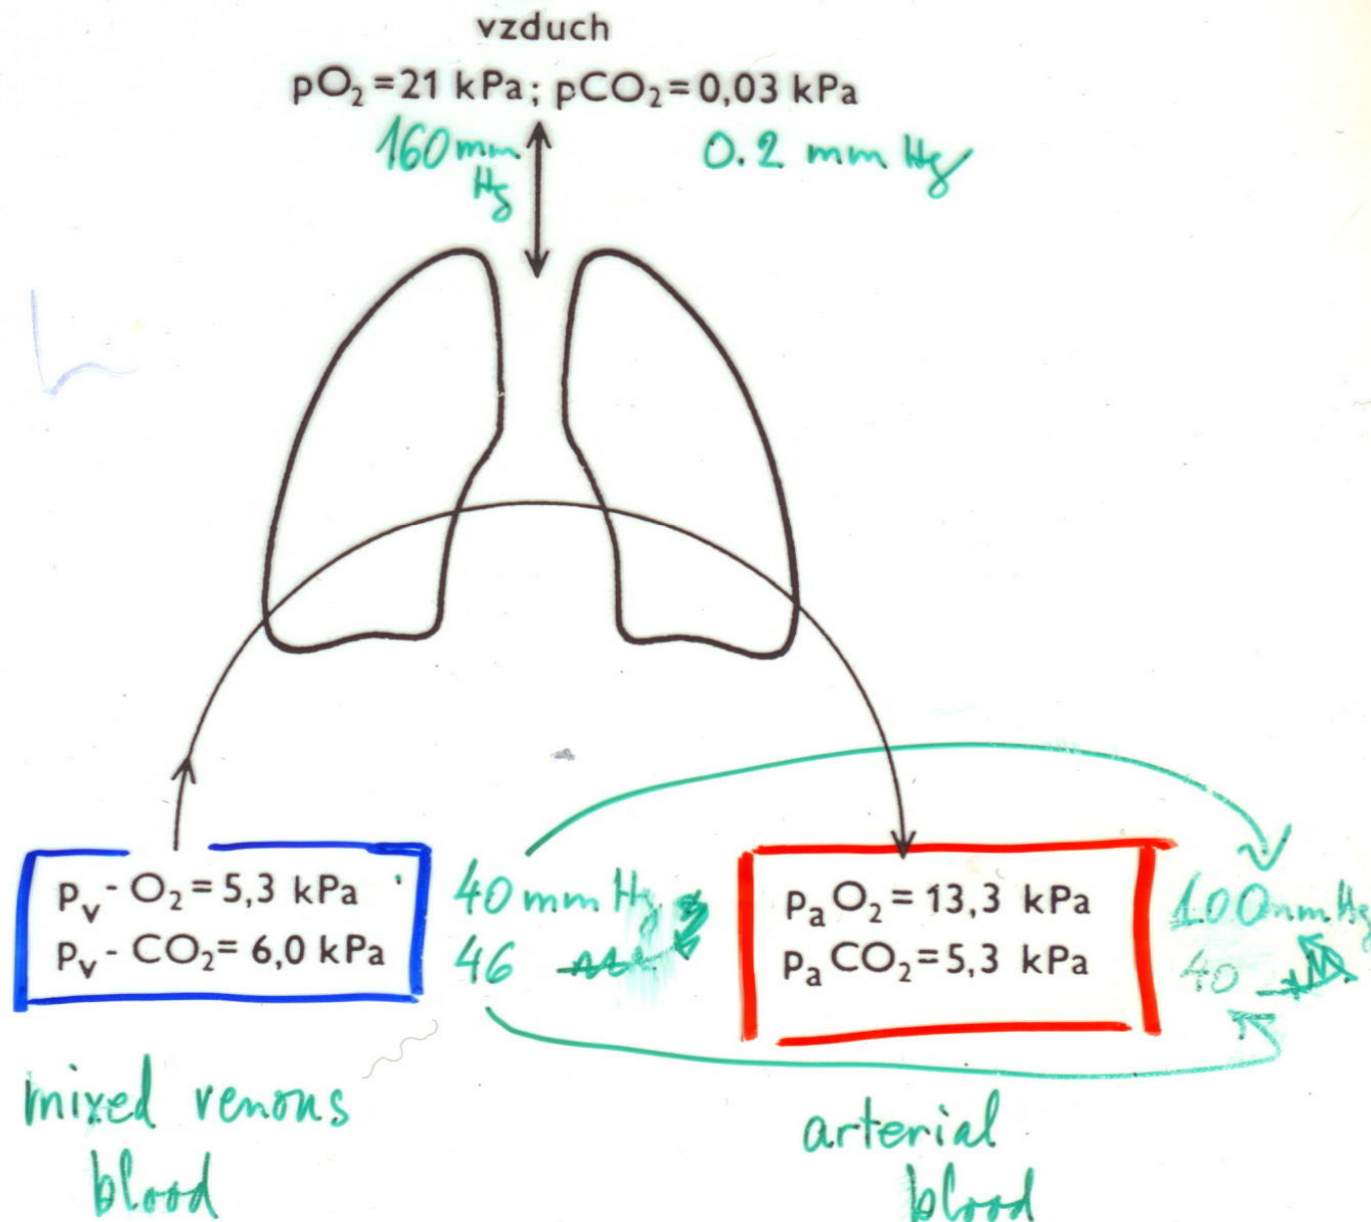 vzduch
pO₂=21 kPa; pCO₂=0,03 kPa
160 mm Hg
0.2 mm Hg
pᵥ- O₂= 5,3 kPa
pᵥ- CO₂= 6,0 kPa
40 mm Hg
46
pₐ O₂= 13,3 kPa
pₐ CO₂=5,3 kPa
100 mm Hg
40
mixed venous
blood
arterial
blood